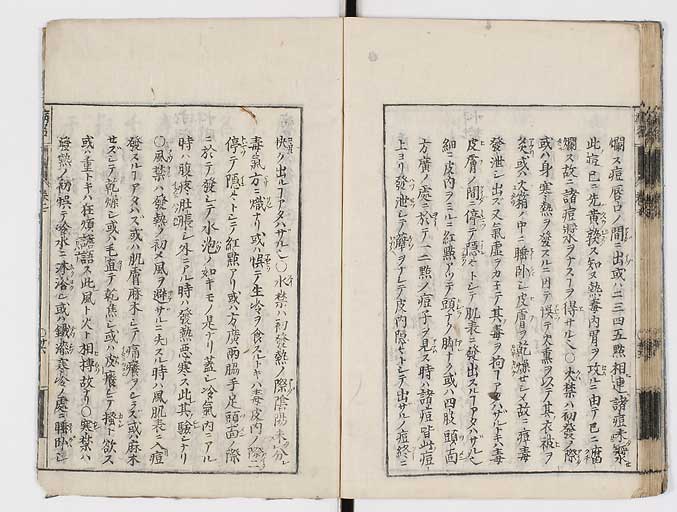 爛ス痘唇口ノ間ニ出或ハ二三四五點相連諸痘未漿
此痘已ニ先黄熟ス知ヌ熱毒内胃ヲ攻ルニ由テ已ニ腐
爛ス故ニ諸痘漿ヲナスヿヲ得サル也〇火禁ハ初發ノ際
或ハ身寒熱ヲ發スルニ因テ誤テ火熏ヲ以テ其衣被ヲ
炙或ハ火箱ノ中ニ睡卧シ皮膚ヲ乾燥セシメ故ニ痘毒
發泄シ出ズ又氣虚ヲカ子テ其毒ヲ拘ヿアタハザルキハ毒
皮膚ノ間ニ停テ隱々トシテ肌表ニ發出スルヿアタハザル也
細ニ皮内ヲミルニ紅點アツテ頭ナク脚ナク或ハ四肢頭面
方廣ノ處ニ於テ一二點ノ痘子ヲ見ス時ハ諸痘皆此痘
上ヨリ發泄シテ瀉ヲナシテ皮内隱々トシテ出サルノ痘終ニ
快ク出ルヿアタハサル也〇水禁ハ初發熱ノ際陰陽未分
毒氣方ニ熾ナリ或ハ悞テ生冷ヲ食ルトキハ毒皮内ノ際ニ
停テ隱々トシテ紅點アリ或ハ方廣兩脇手足頭面ノ際
ニ於テ發シテ水泡ノ如キモノ是ナリ蓋シ冷氣内ニアル
時ハ腹疼肚脹シ外ニアル時ハ發熱悪寒ス此其驗ナリ
〇風禁ハ發熱ノ初メ風ヲ避サルニ失スル時ハ風肌表ニ入痘
發スルヿアタハズ或ハ肌膚麻木シテ痛癢ヲシラズ或ハ麻木
セズシテ乾燥シ或ハ毛直テ乾焦シ或ハ皮癢シテ搔ト欲ス
或ハ重トキハ狂煩譫語ス此風ト火ト相摶故ナリ〇寒禁ハ
發熱ノ初悞テ冷水ニ沐浴シ或ハ鐵漆寒冷ノ處ニ睡卧シ